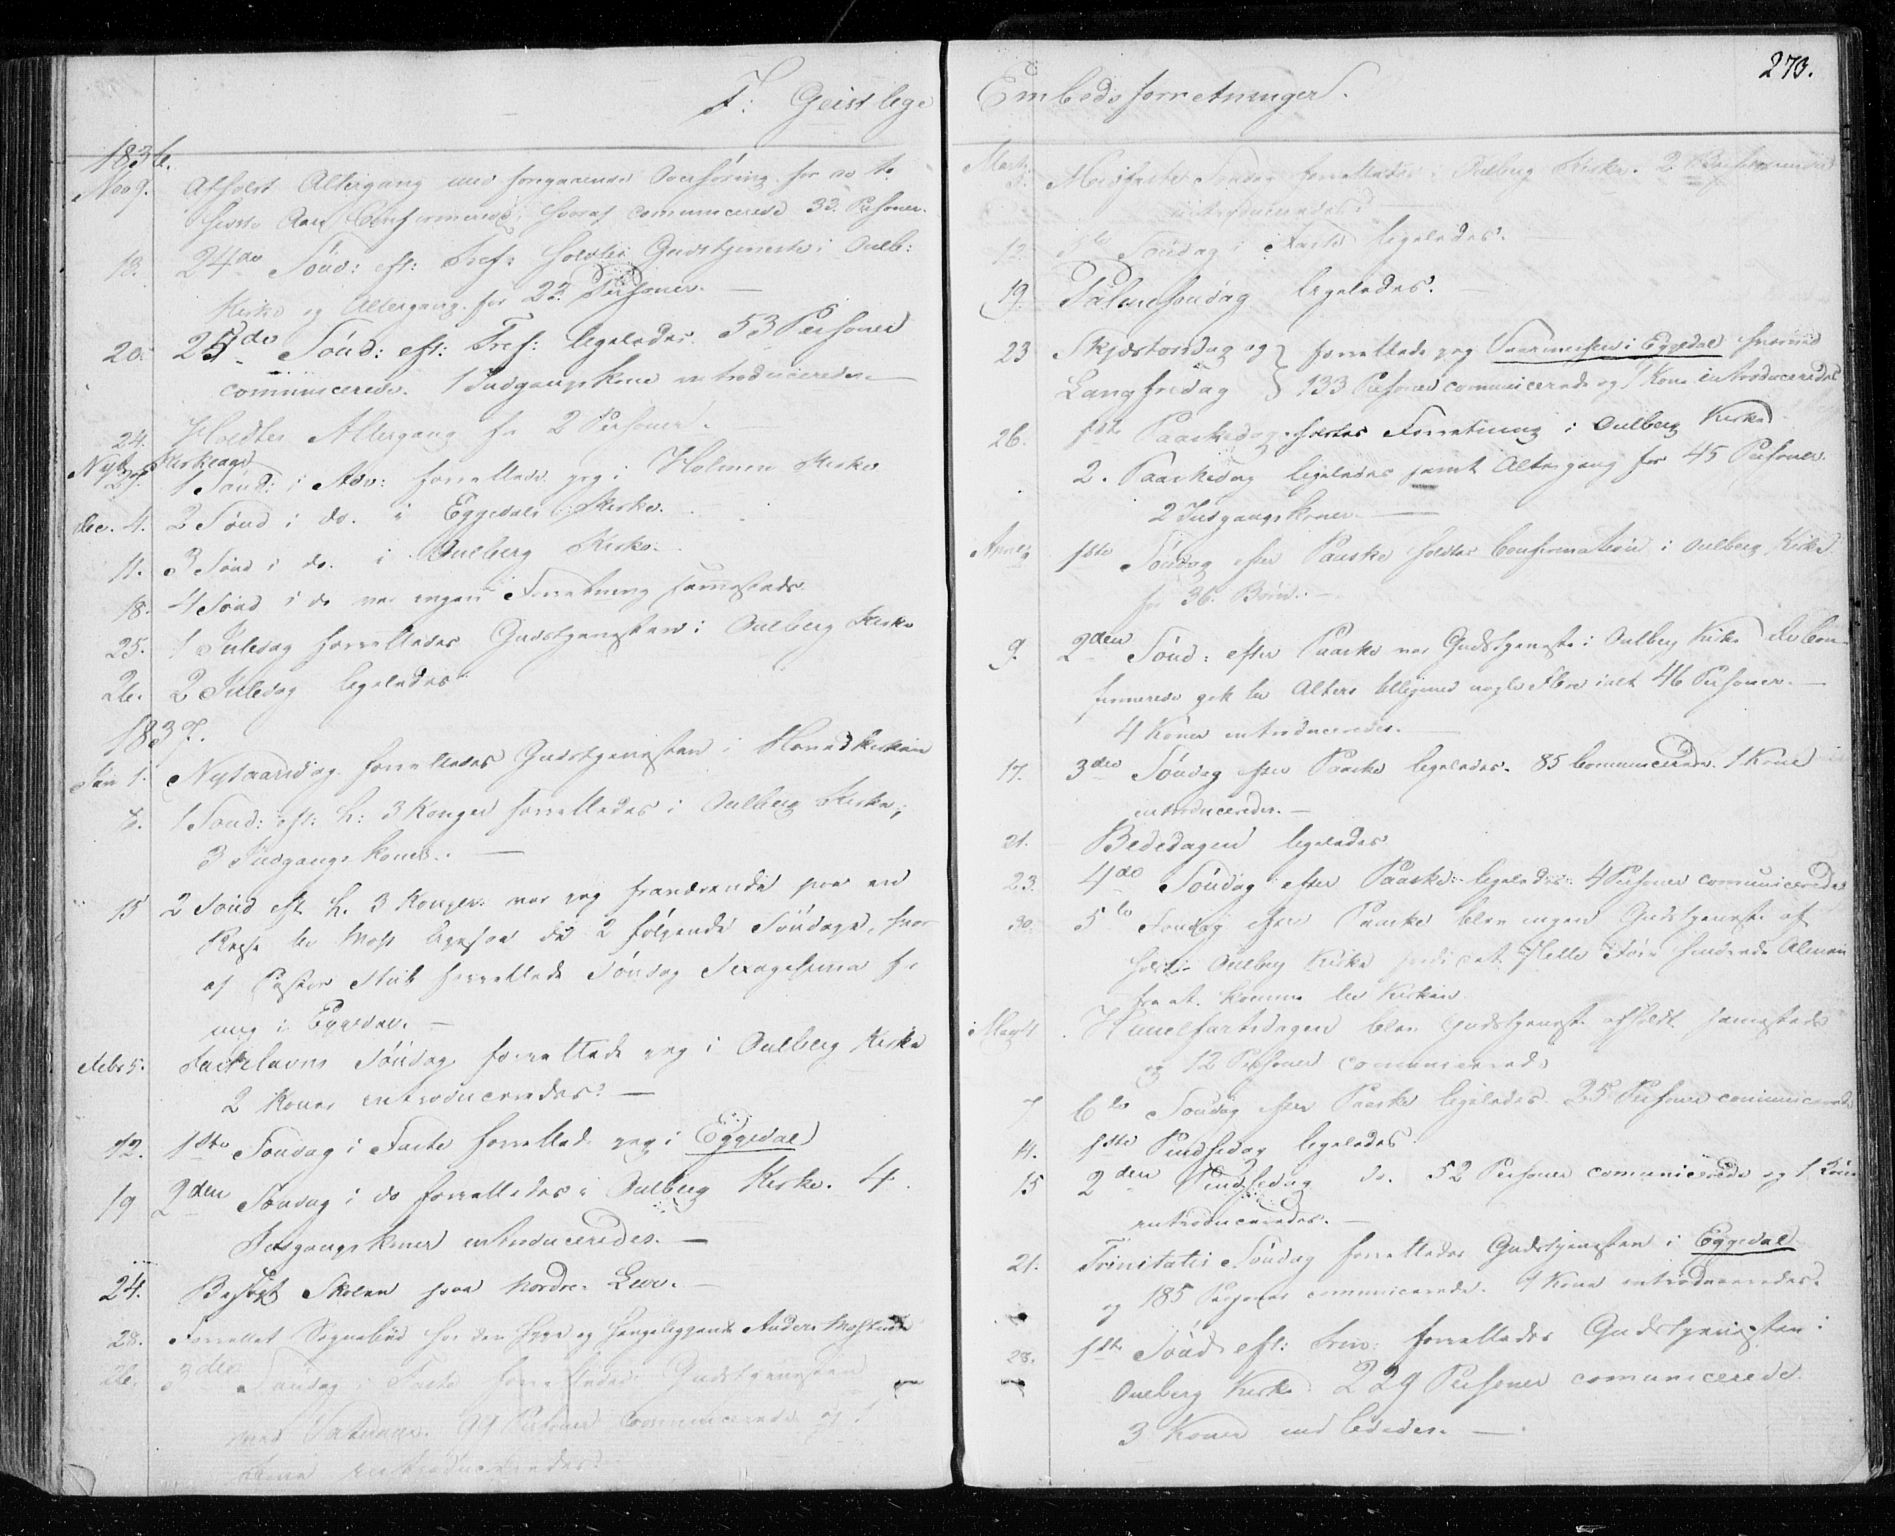 273.
F: Geistlege Embedsforretninger.
1836.
Nov 9. Afholdt Altergang med foregaaende Overhøring for de
sidste Aars Confirmerede, hvoraf comunicerede 33 Personer.
13. 24de Sönd: eft: Tref: holdtes Gudstjeneste i Oulb:
Kirke og Altergang for 23 Personer.
20. 25de Sönd: eft: Tref: ligeledes. 53 Personer
communicerede. 1 Indgangskone introduceredes.
24. Holdtes Altergang for 2 Personer.
Nyt Kirkeaar
27. 1 Sönd: i Adv: forrettede jeg i Holmen Kirke
Dec. 4. 2 Sönd i do. i Eggedals Kirke.
11. 3 Sönd i do. i Oulberg Kirke.
18. 4 Sönd i do var ingen Forretning sammesteds
25. 1 Juledag forrettedes Gudstjenesten i Oulberg Kirke
26. 2 Juledag ligeledes
1837.
Jan 1. Nytaarsdag forrettedes Gudstjenesten i Hovedkirken
8. 1 Sönd: eft: h: 3 Konger forrettedes i Oulberg Kirke;
3 Indgangskoner.
15 2 Sönd eft. h. 3 Konger var jeg fraværende paa en
Rejse til Moss ligesom de 2 følgende Söndage, hvor
af Pastor Stub forrettede Söndag Sexagesima for
mig i Eggedal.
Febr 5. Fastelavns Söndag forrettede jeg i Oulberg Kirke
2 Koner introduceredes.
12. 1ste Söndag i Faste forrettede jeg i Eggedal
19 2den Söndag i do forrettedes i Oulberg Kirke. 4
Indgangskoner introduceredes.
24. Besögt Skolen paa Nordre Lur.
28. Forrettet Sognebud hos den syge og sengeliggende Anders
26. 3die Söndag i Faste forrettedes Gudstjenesten
99 Personer communicerede og 1
Kone introduceredes.
Mart. 5. Midfaste Söndag forrettedes i Oulberg Kirke. 2
introduceredes.
12. 5te Söndag i Faste ligeledes.
19. Palmesöndag ligeledes.
23 Skjærtorsdag og } forrettede jeg Vaarmessen i Eggedal hvorved
Langfredag } 133 Personer communicerede og 1 Kone introduceredes
26. 1ste Paaskedag holdtes Forretning i Oulberg Kirke
2. Paaskedag ligeledes samt Altergang for 45 Personer.
2 Indgangskoner.
April 2 1ste Söndag efter Paaske holdtes Confirmation i Oulberg Kirke
for 36 Börn.
9. 2den Sönd: efter Paaske var Gudstjeneste i Oulberg Kirke De Con-
firmerede gik til Alters tilligemed nogle Flere ialt 46 Personer.
4 Koner introduceredes.
17. 3die Söndag efter Paaske ligeledes. 85 Communicerede. 1 Kone
introduceredes.
21. Bededagen ligeledes
23. 4de Söndag efter Paaske ligeledes. 4 Personer comunicerede
30. 5te Söndag efter Paaske blev ingen Gudstjeneste af
holdt i Oulberg Kirke Före hindrede Almuen
fra at komme til Kirken
May 4. Himmelfartsdagen blev Gudstjeneste afholdt samesteds
og 12 Personer comunicerede
7 6te Söndag efter Paaske ligeledes 25 Personer communicerede
14. 1ste Pindsedag ligeledes
15 2den Pindsedag do. 52 Personer comunicerede og 1 Kone
introduceredes.
21. Trinitatis Söndag forrettedes Gudstjenesten i Eggedal
og 185 Personer communicerede. 1 Kone introduceredes.
28. 1ste Sönd. eft: Trin: forrettedes Gudstjenesten i
Oulberg Kirke. 229 Personer comunicerede.
3 Koner indlededes.